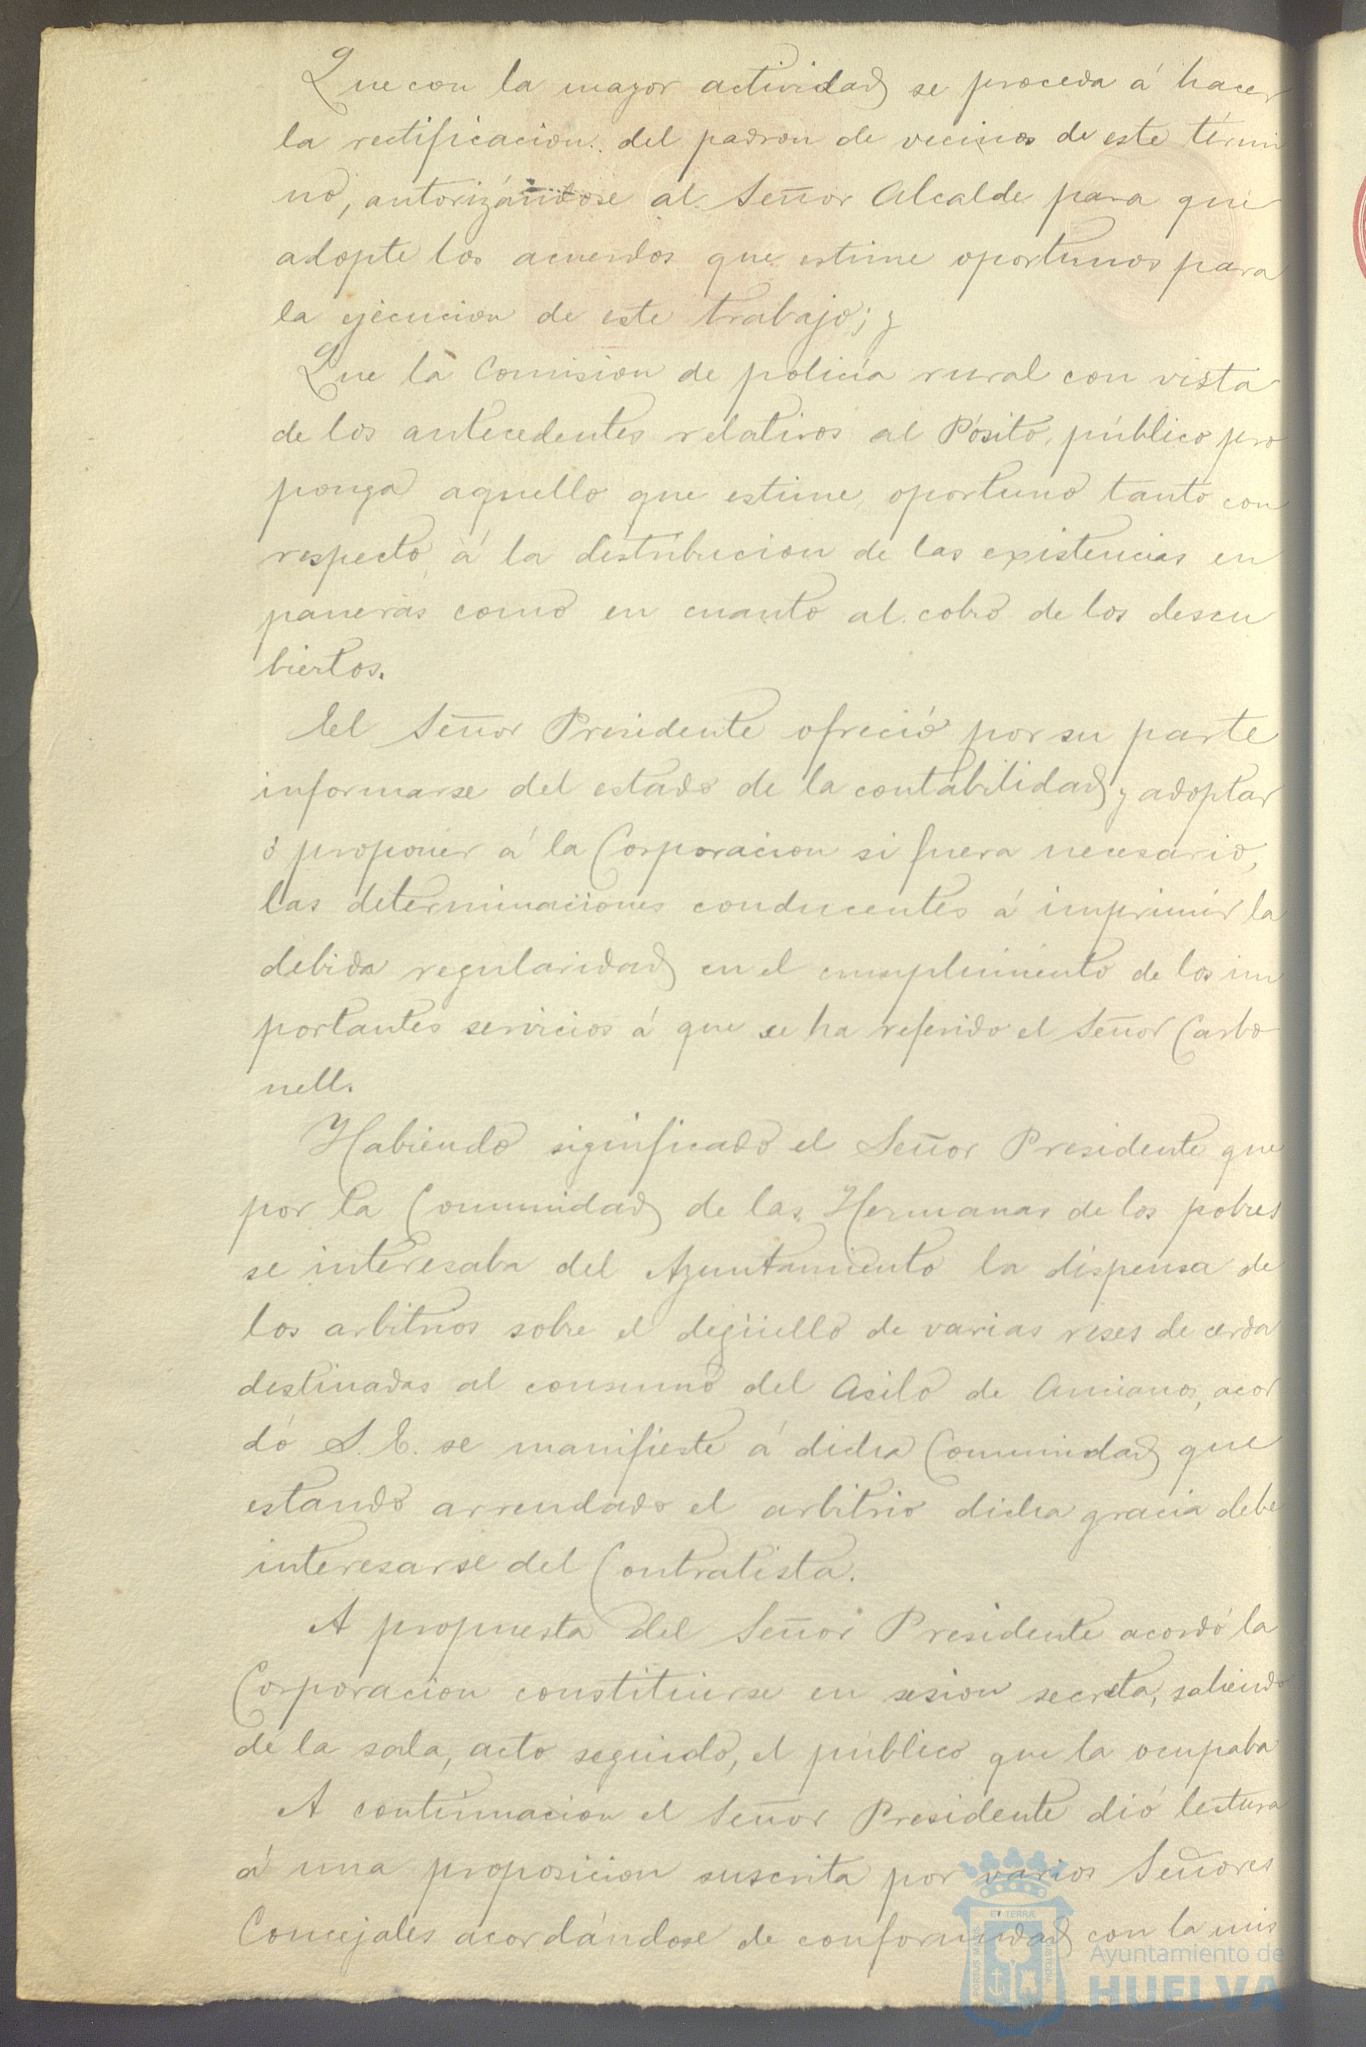 Que con la mayor actividad se proceda á hacer
la rectificacion del padron de vecinos de este térmi
no, autorizándose al Señor Alcalde para que
adopte los acuerdos que estime oportunos para
la ejecucion de este trabajo; y
Que la Comision de policía rural con vista
de los antecedentes relativos al Pósito público pro
ponga aquello que estime oportuno tanto con
respecto á la distribucion de las existencias en
paneras como en cuanto al cobro de los descu
biertos.
El Señor Presidente ofreció por su parte
informarse del estado de la contabilidad y adoptar
ó proponer á la Corporacion si fuera necesario,
las determinaciones conducentes á imprimir la
debida regularidad en el cumplimiento de los im
portantes servicios á que se ha referido el Señor Carbo
nell.
Habiendo significado el Señor Presidente que
por la Comunidad de las Hermanas de los pobres
se interesaba del Ayuntamiento la dispensa de
los arbitrios sobre el degüello de varias reses de cerda
destinadas al consumo del Asilo de Ancianos, acor
dó S. E. se manifieste á dicha Comunidad que
estando arrendado el arbitrio dicha gracia debe
interesarse del Contratista.
A propuesta del Señor Presidente acordó la
Corporacion constituirse en sesion secreta, saliendo
de la sala, acto seguido, el público que la ocupaba
A continuacion el Señor Presidente dió lectura
á una proposicion suscrita por varios Señores
Concejales acordándose de conformidad con la mis
Ayuntamiento de
HUELVA